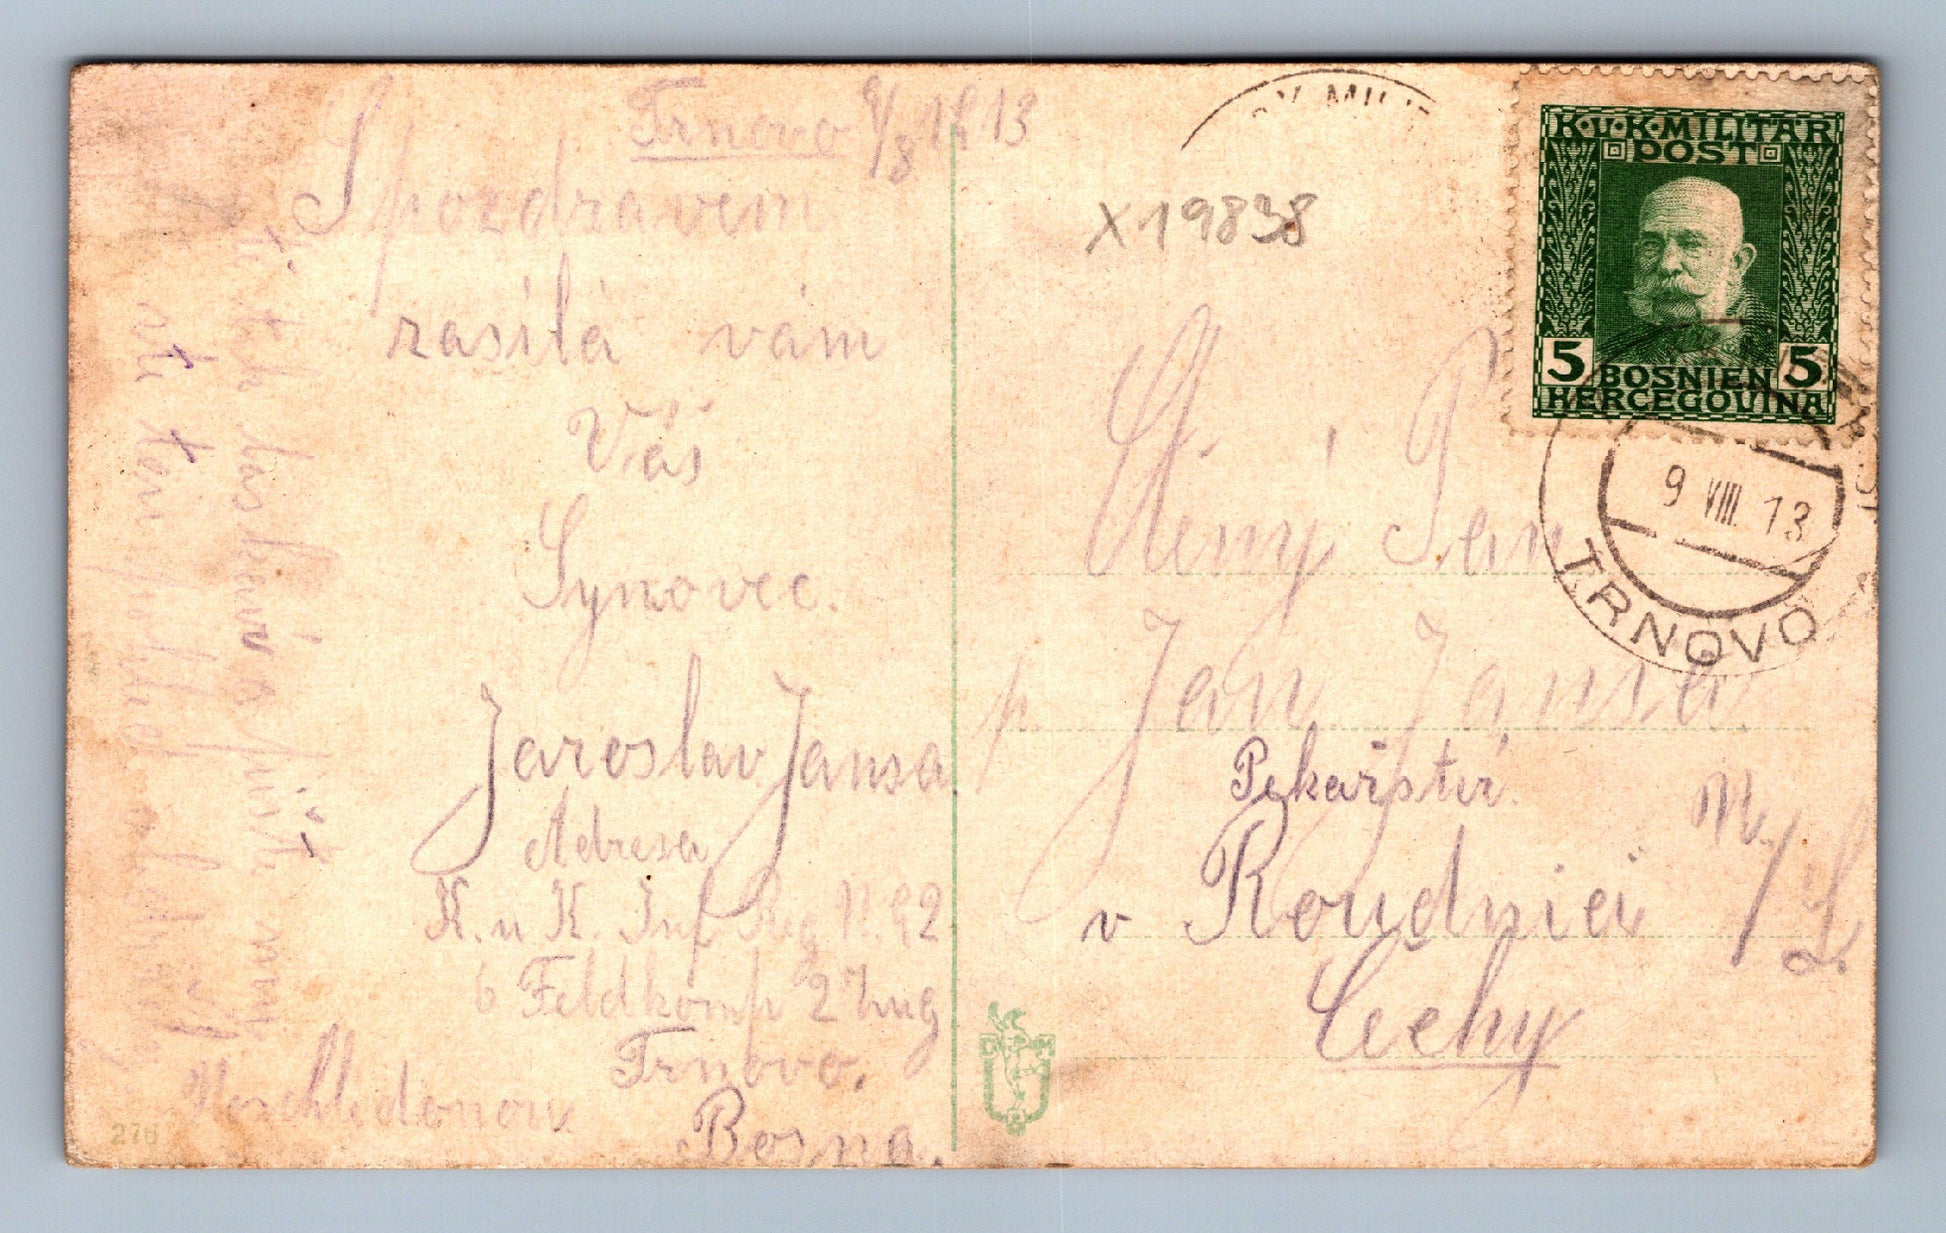 Trnovo 9/8 1913
S pozdravem
zasílá vám
Váš
Synovec.
Jaroslav Jansa.
Adresa
K. u K. Inf Reg N. 92
6 Feldkomp 2 Zug
Trnovo.
Bosna.
X19838
K.U.K. MILITÄR
POST
5 5
BOSNIEN
HERCEGOVINA
9 VIII. 13
TRNOVO
Ctěný Pan
p. Jan Jansa.
Pekařství.
v Roudnici n./L.
Čechy
276